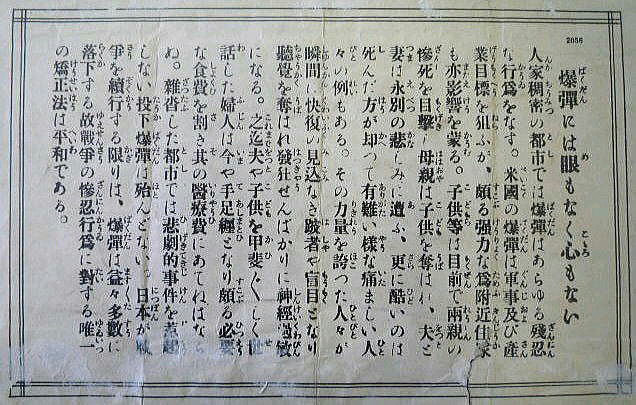 2056
爆彈には眼もなく心もない
人家稠密の都市では爆彈はあらゆる殘忍
な行爲をなす。米國の爆彈は軍事及び產
業目標を狙ふが、頗る強力な爲附近住家
も亦影響を蒙る。子供等は目前で兩親の
慘死を目擊し、母親は子供を奪はれ、夫と
妻は永別の悲しみに遭ふ、更に酷いのは
死んだ方が却つて有難い樣な痛ましい人
々の例もある。その力量を誇つた人々が
瞬間に快復の見込なき跛者や盲目となり
聽覺を奪はれ發狂せんばかりに神經過敏
になる。之迄夫や子供を甲斐〲しく世
話した婦人は今や手足纏となり頗る必要
な食費を割き其の醫療費にあてねばなら
ぬ。雜沓した都市では悲劇的事件を惹起
しない投下爆彈は殆んどない。日本が戰
爭を續行する限りは、爆彈は益々多數に
落下する故戰爭の慘忍行爲に對する唯一
の矯正法は平和である。